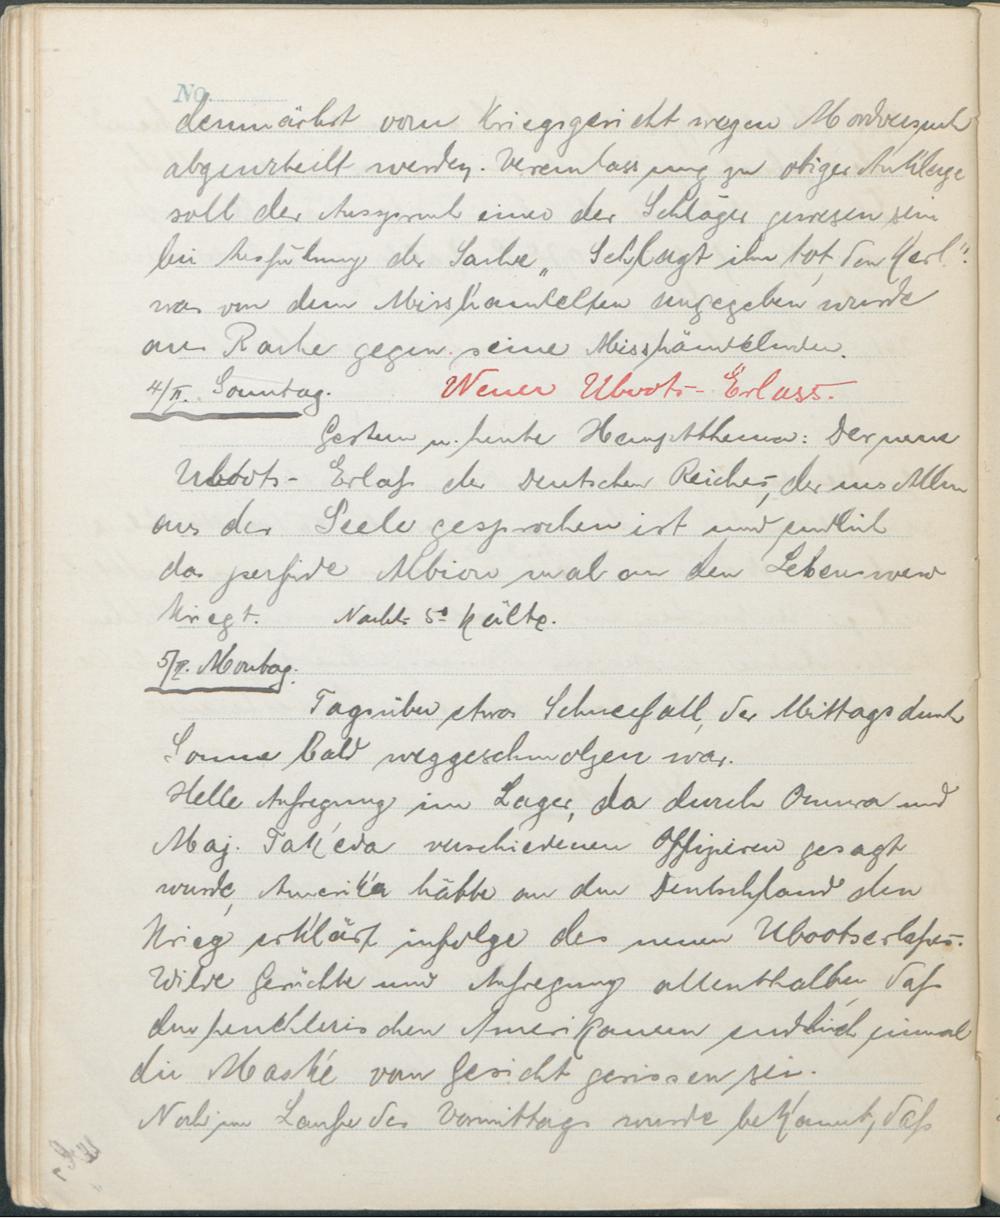 No.
demnächst vom Kriegsgericht wegen Mordversuch
abgeurteilt werden. Veranlassung zu obiger Anklage
soll der Ausspruch eines der Schläger gewesen sein
bei Ausführung der Sache „Schlagt ihn tot, den Kerl".
was von dem Misshandelten angegeben wurde
aus Rache gegen seine Misshändelnden.
4/II. Sonntag. Neuer Uboots-Erlass.
Gestern u. heute Hauptthema: Der neue
Uboots-Erlaß des Deutschen Reiches, der uns Allen
aus der Seele gesprochen ist und endlich
das perfide Albion mal an den Lebensnerv
kriegt. Nachts 5° Kälte.
5/II. Montag.
Tagsüber etwas Schneefall, der Mittags durch
Sonne bald weggeschmolzen war.
Helle Aufregung im Lager, da durch Omura und
Maj. Takeda verschiedenen Offizieren gesagt
wurde, Amerika hätte an den Deutschland den
Krieg erklärt infolge des neuen Ubootserlaßes.
Wilde Gerüchte und Aufregung allenthalben, daß
den heuchlerischen Amerikanern endlich einmal
die Maske vom Gesicht gerissen sei.
Noch im Laufe des Vormittags wurde bekannt, daß